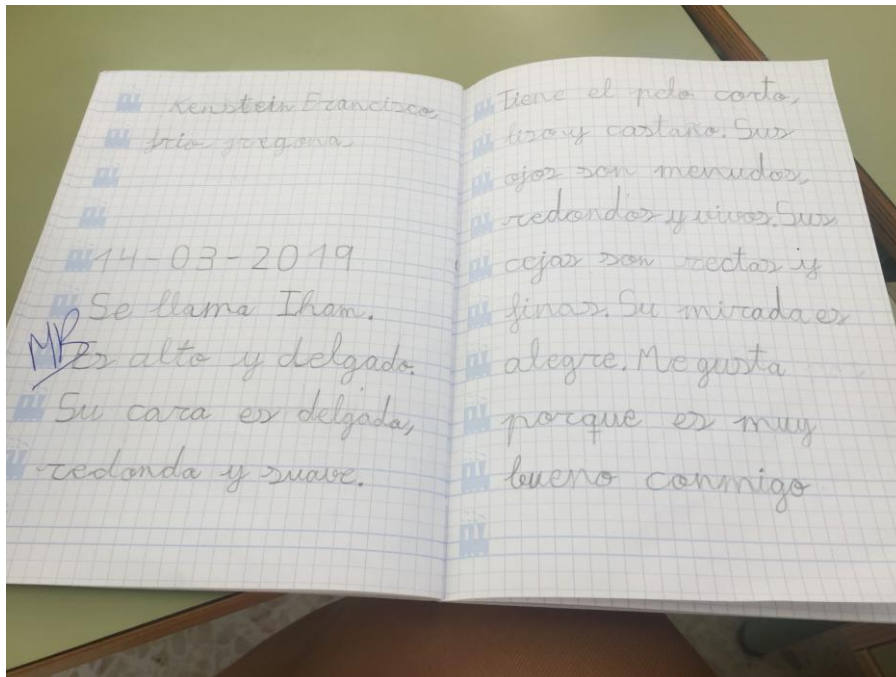 Kenstein Francisco
frio fregona
14-03-2019
Se llama Iham.
MB
Es alto y delgado.
Su cara es delgada,
redonda y suave.
Tiene el pelo corto,
liso y castaño. Sus
ojos son menudos,
redondos y vivos. Sus
cejas son rectas y
finas. Su mirada es
alegre. Me gusta
porque es muy
bueno conmigo